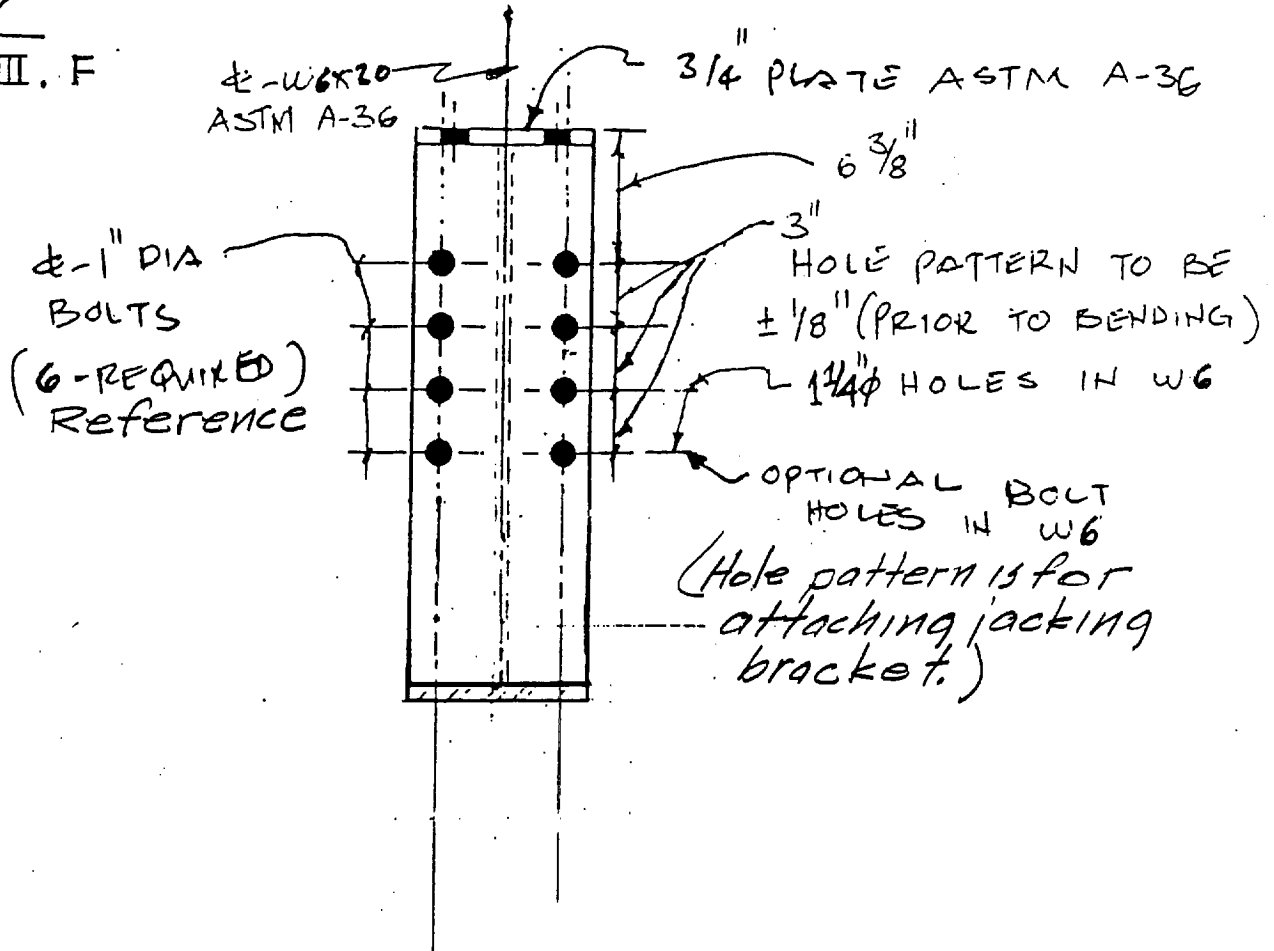 III. F
℄-W6X20
ASTM A-36
3/4" PLATE ASTM A-36
6 3/8"
3"
HOLE PATTERN TO BE
± 1/8" (PRIOR TO BENDING)
1 1/4"φ HOLES IN W6
℄-1" DIA
BOLTS
(6-REQUIRED)
Reference
OPTIONAL BOLT
HOLES IN W6
(Hole pattern is for
attaching jacking
bracket.)